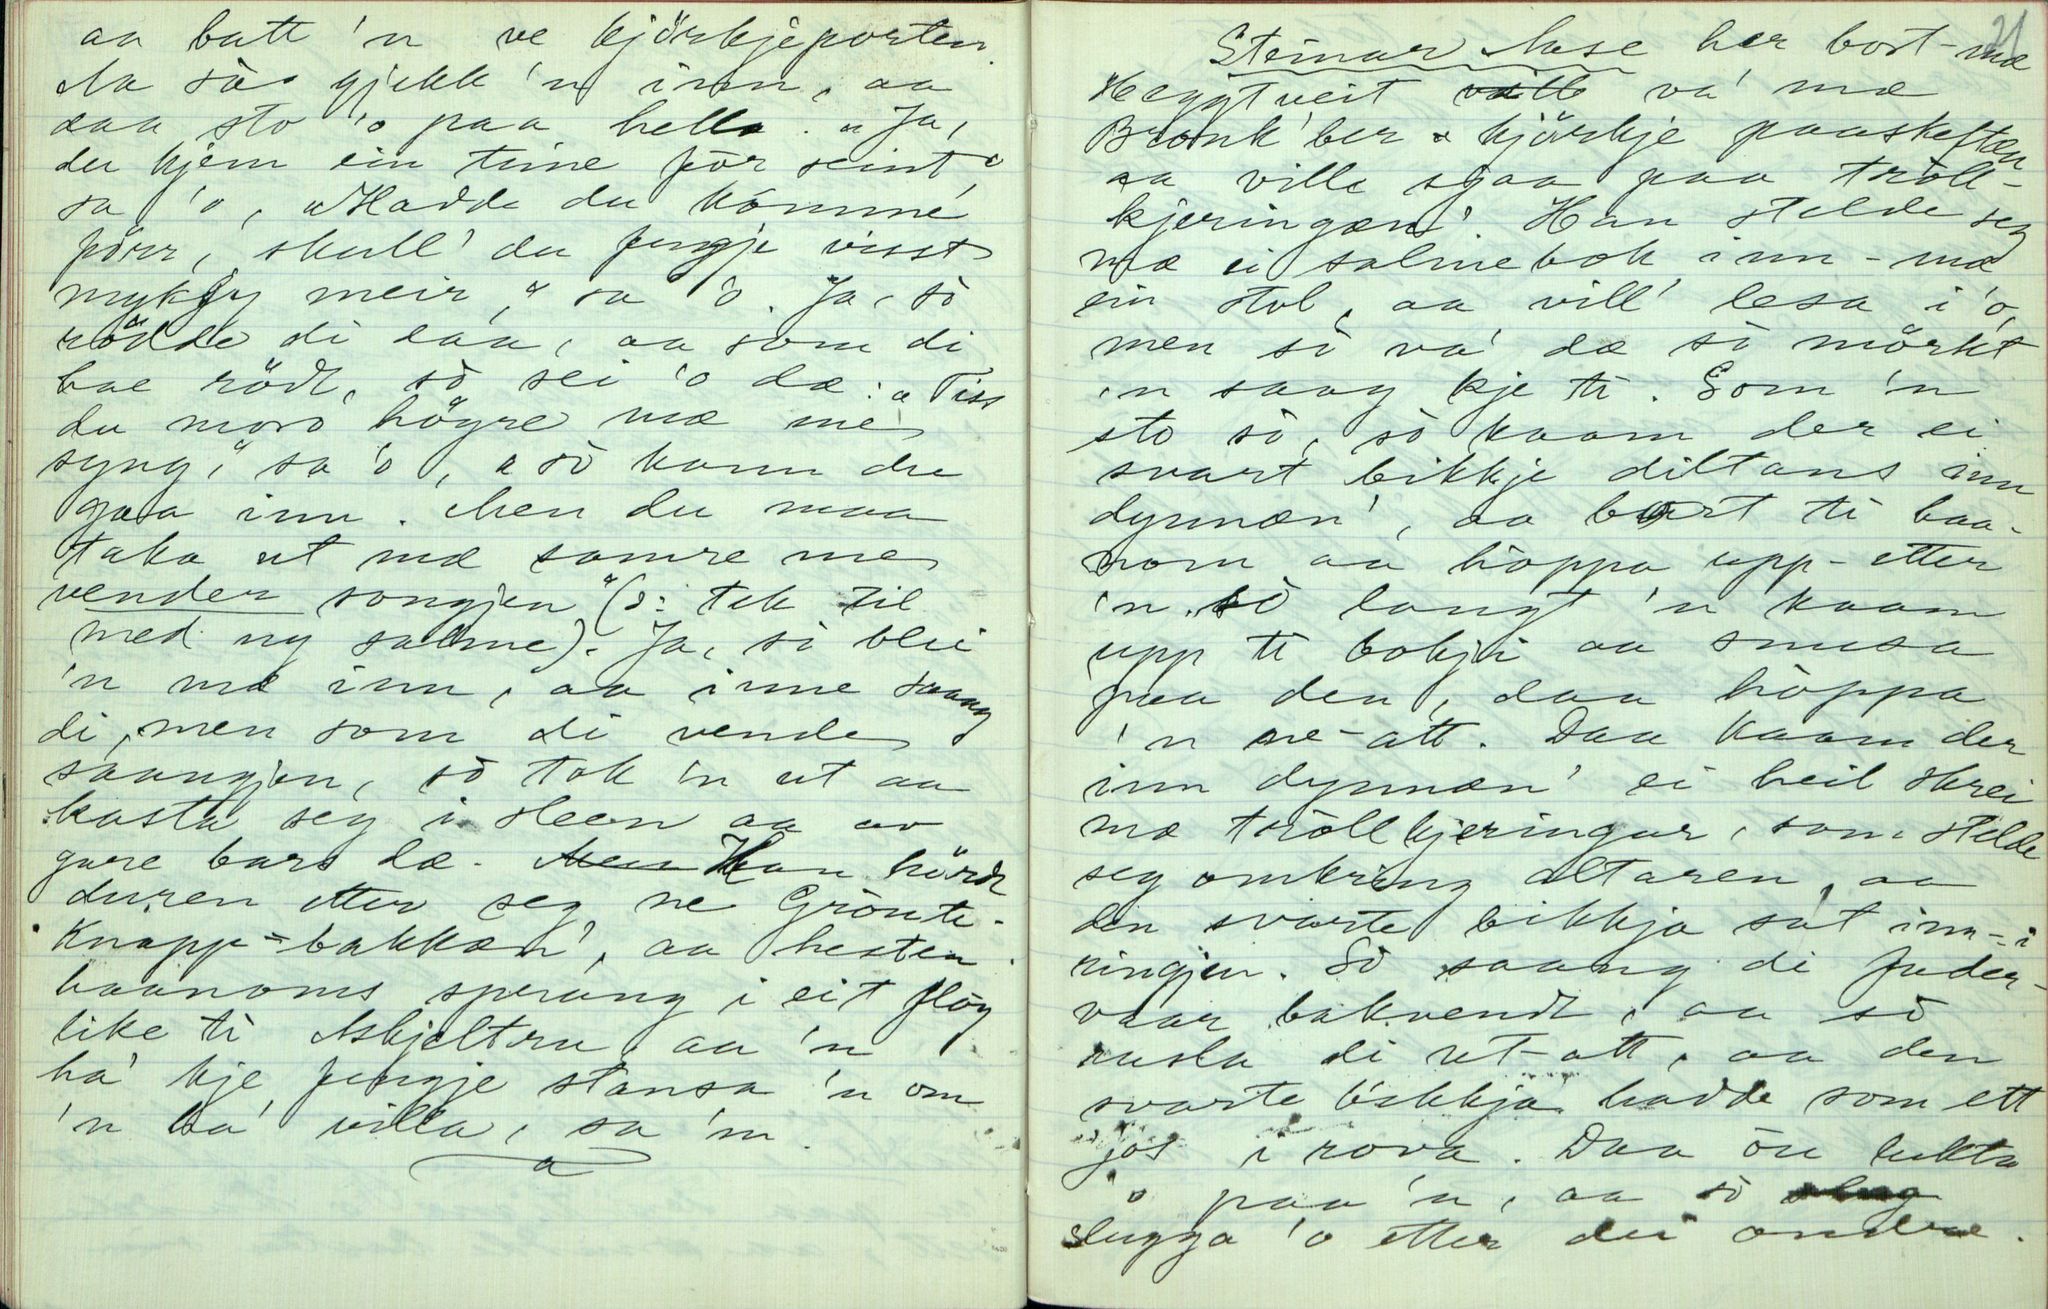 aa batt 'n ve kjörkjeporten.
Aa så gjekk 'n inn, aa
daa sto 'o paa hella. „Ja,
du kjem ein time för seint“
sa 'o, „Hadde du kömme
förr, skull' du fengje visst
mykjy meir,“ sa 'o. Ja, sò
rödde di daa, aa som di
hae rödt, sò sei 'o dæ: „Viss
du moro högre mæ me
syng,“ sa 'o, „sò kann du
gaa inn. Men du maa
taka ut mæ samre me
vender songjen“ (ɔ: tek til
med ny salme). Ja, sò blei
'n mæ inn, aa inne saang
di, men som di vende
saangjen, sò tok 'n ut aa
kasta seg i sleen aa av
gare bars dæ. Han hörde
duren etter seg ne Grönte-
Knapp-bakkæn', aa hesten
haanoms sprang i eit flög
like ti Askjeltru, aa 'n
ha' kje fengje stansa 'n om
'n ha' villa, sa 'n.
21
Steinar Aase her bort-mæ
Heggtveit va' mæ
Bronk'ber kjörkje paaskeftæn
aa ville sjaa paa tröll-
kjeringæn'. Han stelde seg
mæ ei salmebok inn-mæ
ein stol, aa vill' lesa i 'o,
men sò va' dæ sò mörkt
'n saag kje ti. Som 'n
sto sò, sò kaam der ei
svart bikkje diltans inn
dynnæn', aa bort ti haa-
nom aa höppa upp-etter
'n sò langt 'n kaam
upp ti bokji aa snusa
paa den, daa höppa
'n ne-att. Daa kaam der
inn dynnæn' ei heil skrei
mæ tröllkjeringar, som stelde
seg omkring altaren, aa
den svarte bikkja sat inn-i
ringjen. Sò saang di Fader-
vaar bakvendt, aa sò
rusla di ut-att, aa den
svarte bikkja hadde som ett
jos i rova. Daa ön lukta
'o paa 'n, aa sò
slugga 'o etter dei andre.